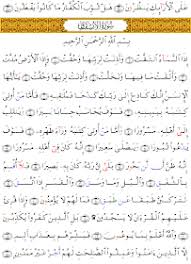 عَلَى الْأَرَائِكِ يَنظُرُونَ هَلْ ثُوِّبَ الْكُفَّارُ مَا كَانُوا يَفْعَلُونَ
سُورَةُ الانشِقَاقِ
بِسْمِ اللَّهِ الرَّحْمَٰنِ الرَّحِيمِ
إِذَا السَّمَاءُ انشَقَّتْ وَأَذِنَتْ لِرَبِّهَا وَحُقَّتْ وَإِذَا الْأَرْضُ مُدَّتْ
وَأَلْقَتْ مَا فِيهَا وَتَخَلَّتْ وَأَذِنَتْ لِرَبِّهَا وَحُقَّتْ يَا أَيُّهَا
الْإِنسَانُ إِنَّكَ كَادِحٌ إِلَىٰ رَبِّكَ كَدْحًا فَمُلَاقِيهِ فَأَمَّا مَنْ أُوتِيَ
كِتَابَهُ بِيَمِينِهِ فَسَوْفَ يُحَاسَبُ حِسَابًا يَسِيرًا وَيَنقَلِبُ
إِلَىٰ أَهْلِهِ مَسْرُورًا وَأَمَّا مَنْ أُوتِيَ كِتَابَهُ وَرَاءَ ظَهْرِهِ فَسَوْفَ
يَدْعُو ثُبُورًا وَيَصْلَىٰ سَعِيرًا إِنَّهُ كَانَ فِي أَهْلِهِ مَسْرُورًا
إِنَّهُ ظَنَّ أَن لَّن يَحُورَ بَلَىٰ إِنَّ رَبَّهُ كَانَ بِهِ بَصِيرًا فَلَا أُقْسِمُ
بِالشَّفَقِ وَاللَّيْلِ وَمَا وَسَقَ وَالْقَمَرِ إِذَا اتَّسَقَ
لَتَرْكَبُنَّ طَبَقًا عَن طَبَقٍ فَمَا لَهُمْ لَا يُؤْمِنُونَ وَإِذَا قُرِئَ
عَلَيْهِمُ الْقُرْآنُ لَا يَسْجُدُونَ بَلِ الَّذِينَ كَفَرُوا يُكَذِّبُونَ
وَاللَّهُ أَعْلَمُ بِمَا يُوعُونَ فَبَشِّرْهُم بِعَذَابٍ أَلِيمٍ
إِلَّا الَّذِينَ آمَنُوا وَعَمِلُوا الصَّالِحَاتِ لَهُمْ أَجْرٌ غَيْرُ مَمْنُونٍ